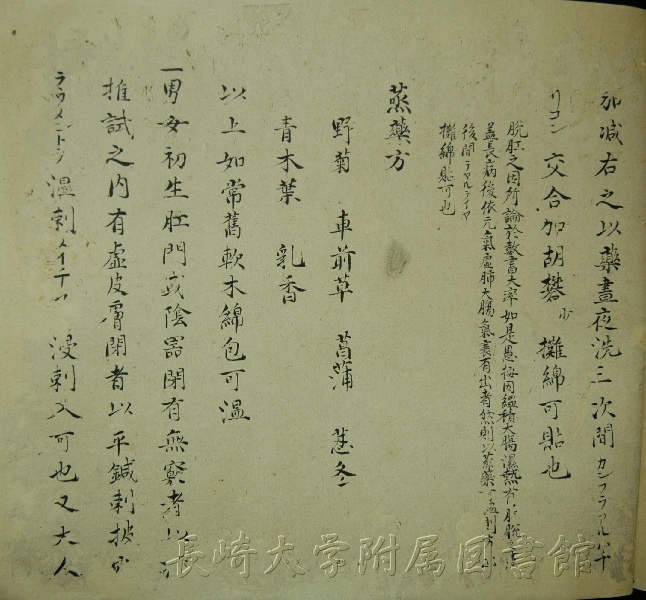 加減右之以藥晝夜洗三次間カンフラアルハナ
リコン 交合加胡礬少 攤綿可貼也
脱肛之因所論於数書大率如是愚按因縕積大腸濕熱有肛脱
蓋長病後依元氣虚肺大腸氣衰有出者然則以蒸藥
後間テヤルテイヤ
攤綿貼可也
蒸藥方
野菊 車前草 菖蒲 忍冬
青木葉 乳香
以上如常舊軟木綿包可温
一男女初生肛門或陰器閉有無竅者以
推試之内有虚皮膚閉者以平鍼刺披
ラウメントフ 温刺メイチ 浸刺又可也又大人
長崎大学附属図書館